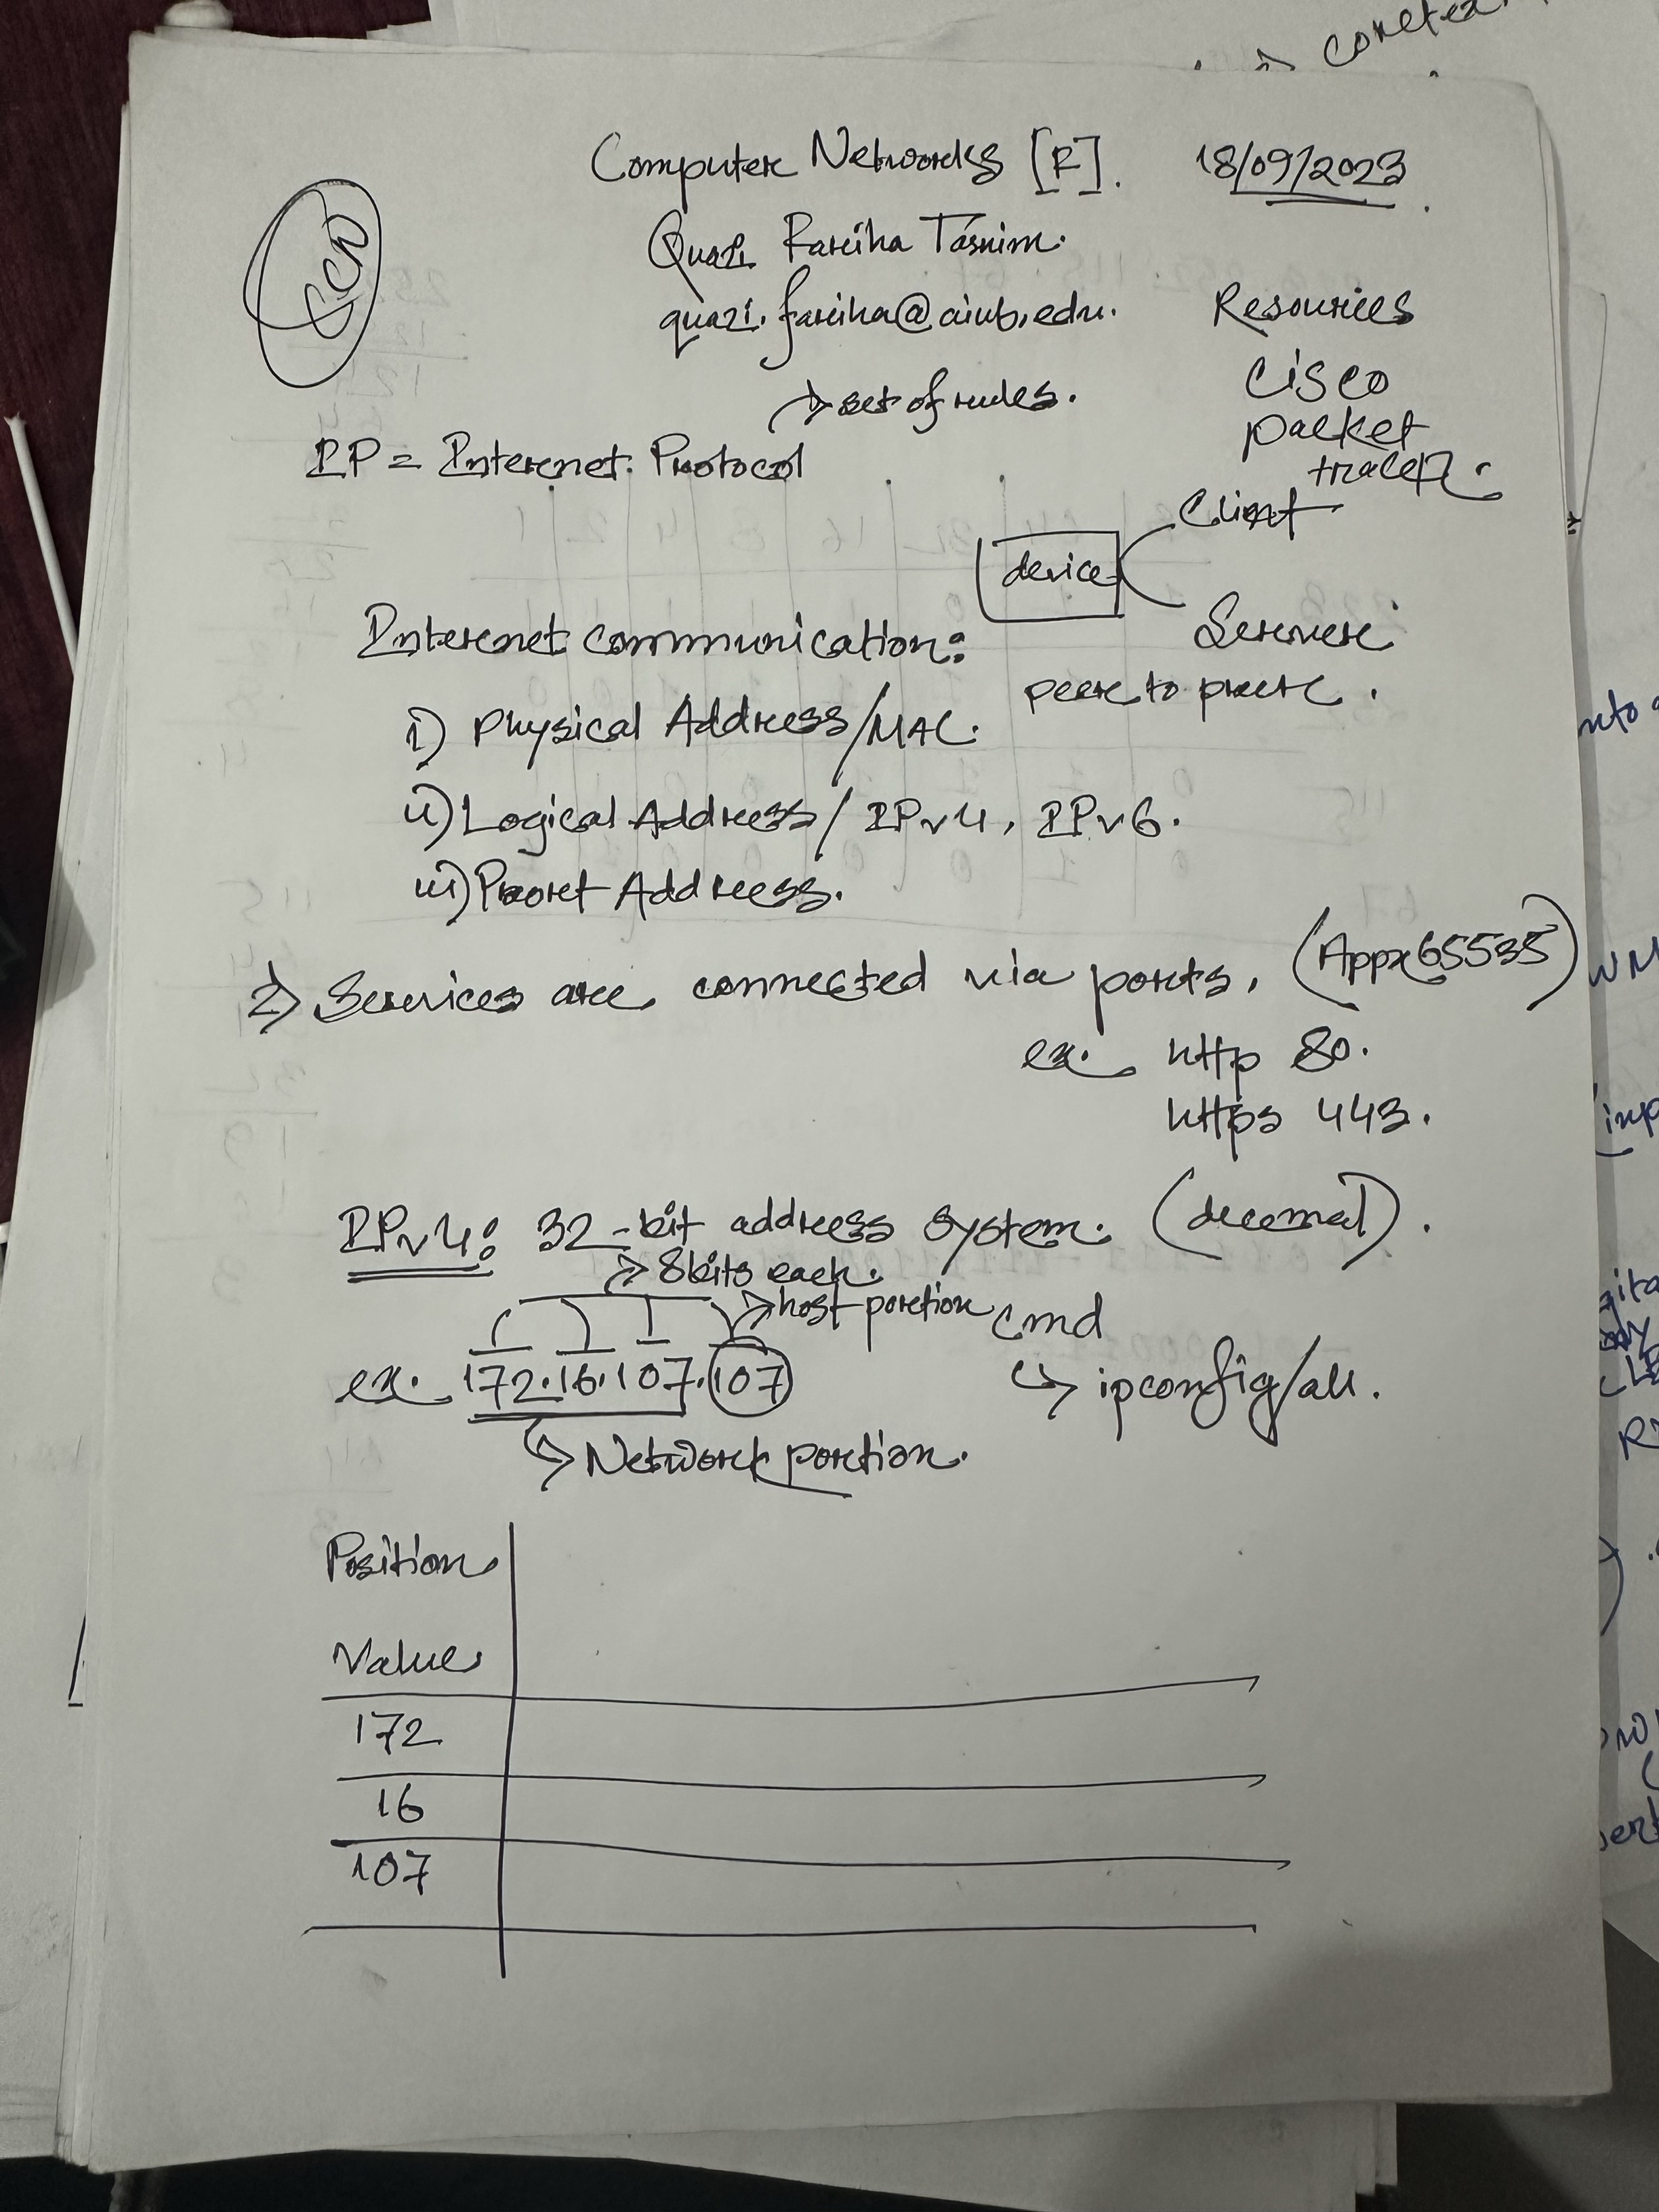 Computer Networks [R]. 18/09/2023
Quazi Fariha Tasnim.
quazi.fariha@aiub.edu.
Resources
Cisco
packet
tracer.
→ set of rules.
IP = Internet Protocol
device
Client
Server
peer to peer.
Internet communication:
i) Physical Address/MAC.
ii) Logical Address/IPv4, IPv6.
iii) Port Address.
2) Services are connected via ports. (Appx 65535)
ex. http 80.
https 443.
IPv4: 32-bit address system. (decemal).
→ 8bits each.
→ host portion
ex. 172.16.107.107
→ Network portion.
cmd
↳ ipconfig/all.
Position
Value
172
16
107